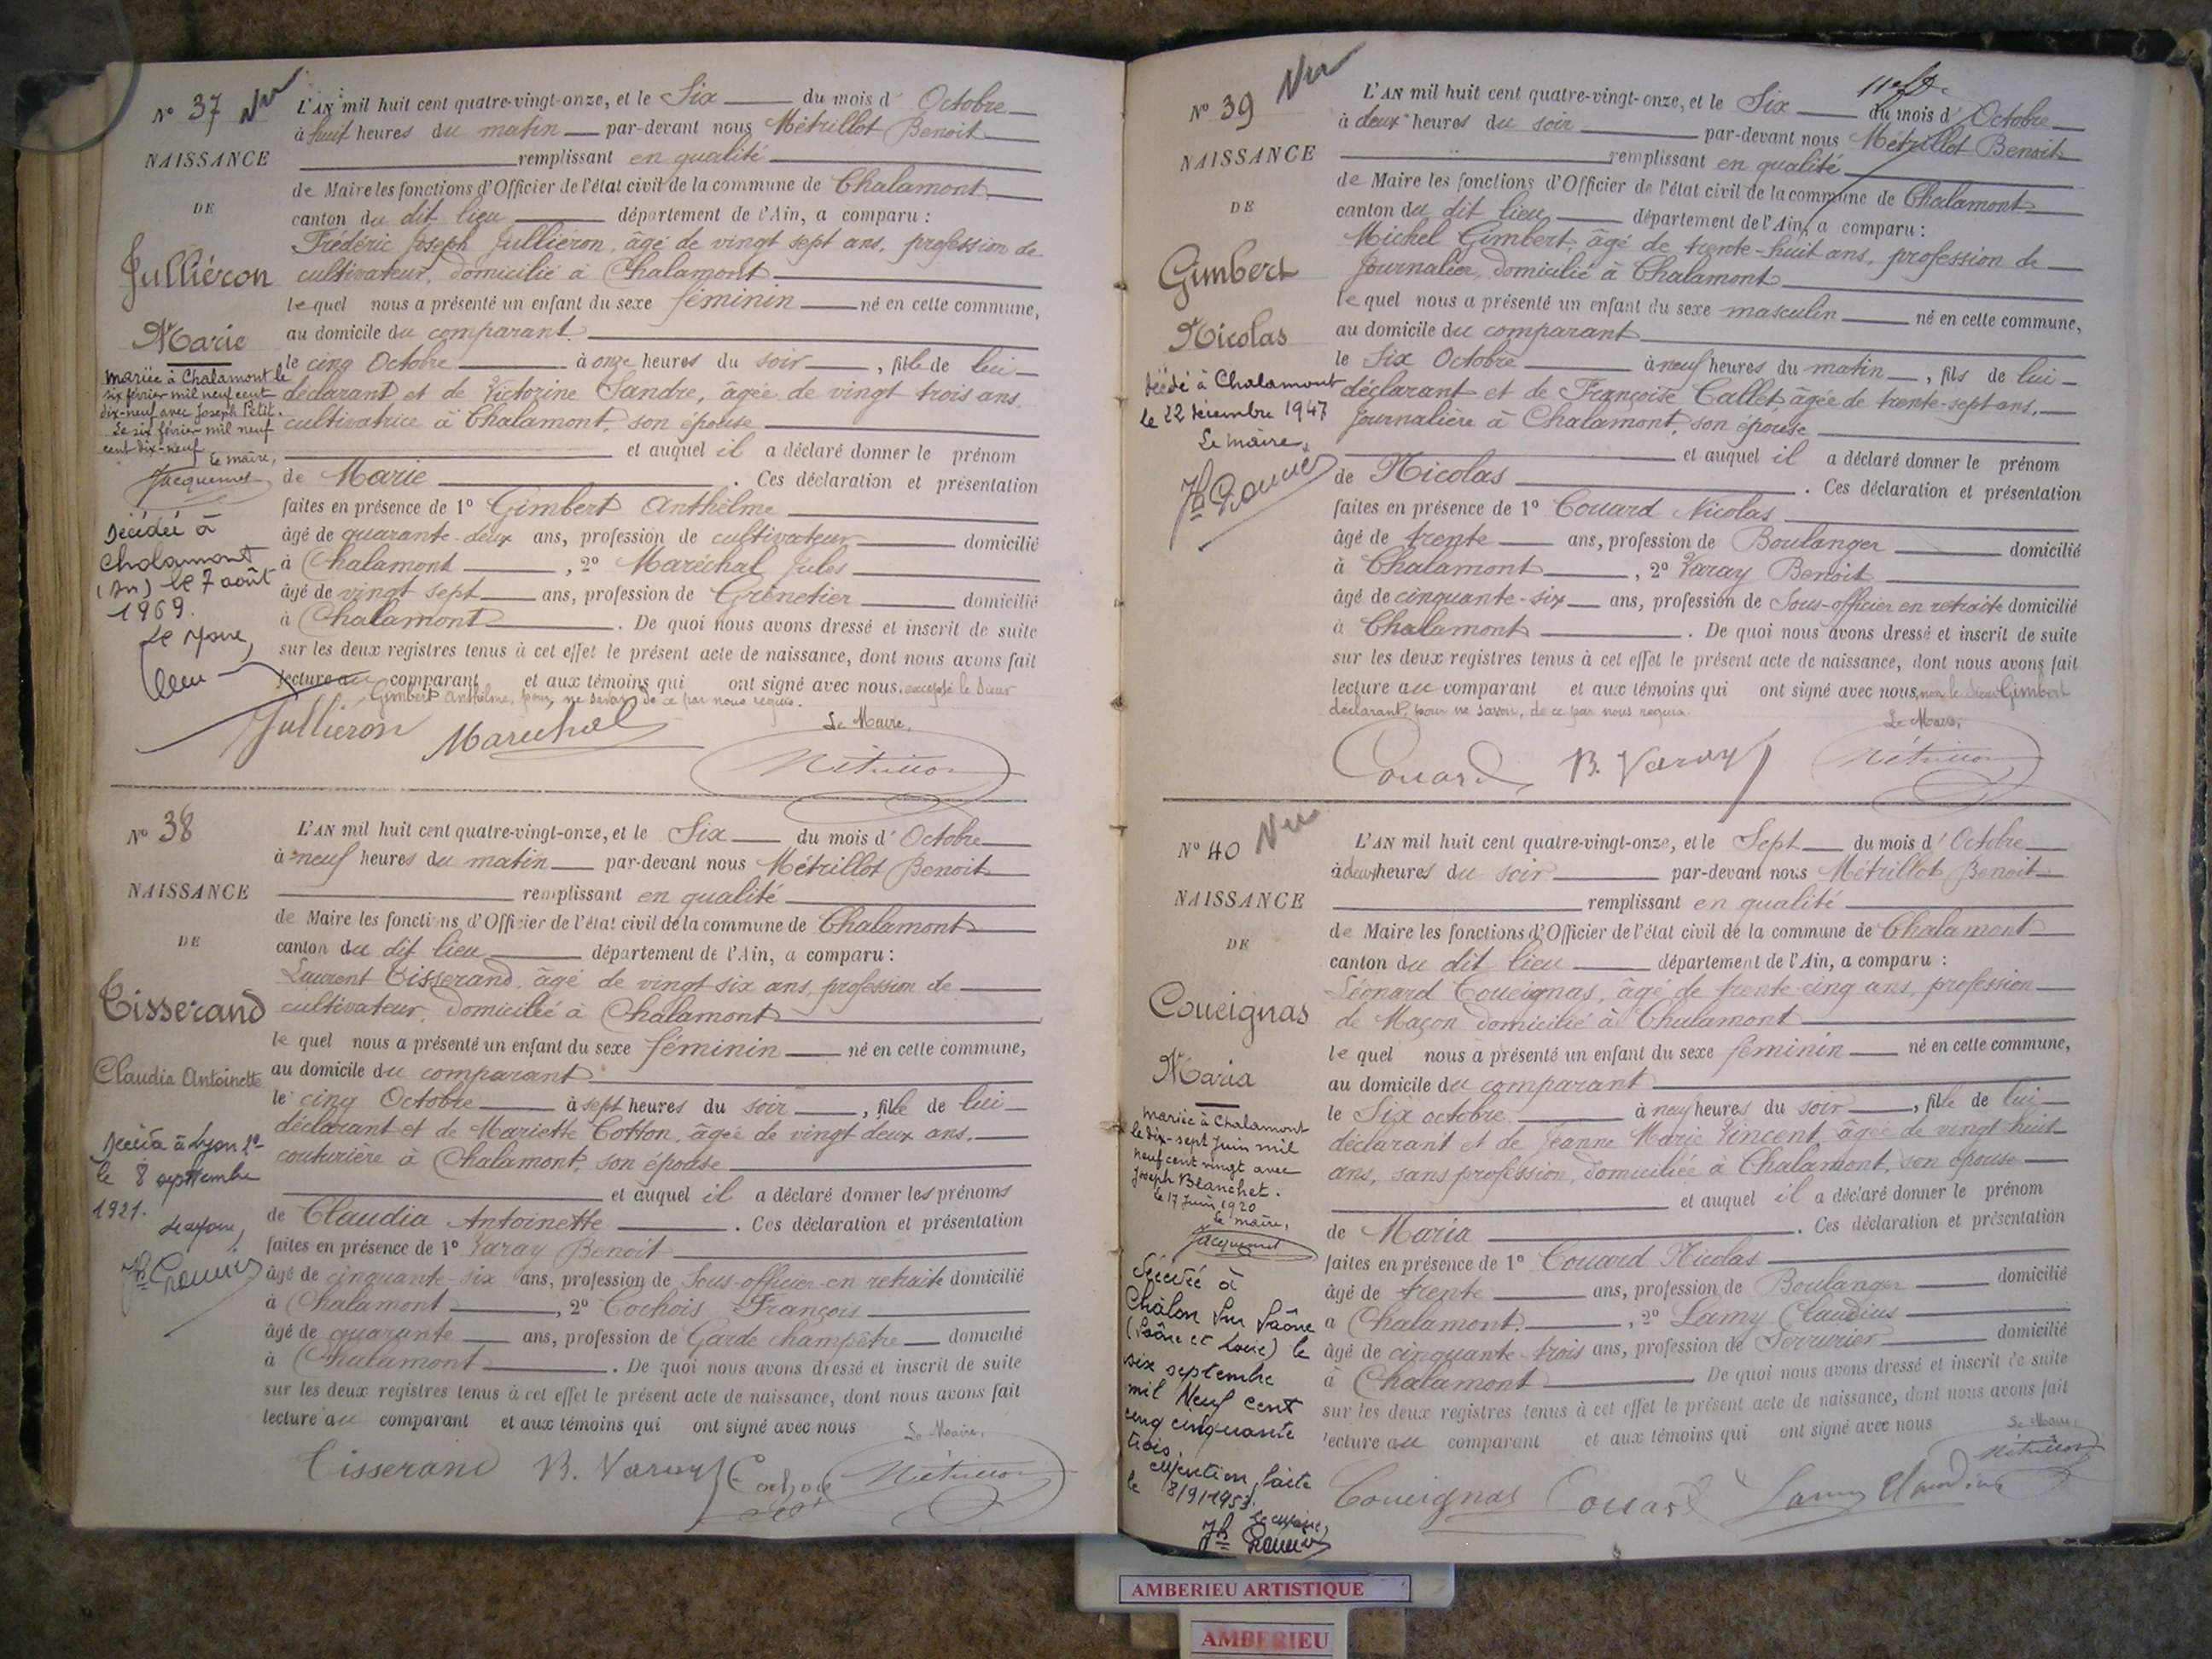 N° 37
NAISSANCE
DE
Julliéron
Marie
mariée à Chalamont le
six février mil neuf cent
dix-neuf avec Joseph Petit.
Le six février mil neuf
cent dix-neuf
Le maire,
Jacquemet
Décédée à
Chalamont
(Ain) le 7 août
1969.
Le Maire,
L'AN mil huit cent quatre-vingt-onze, et le Six du mois d' Octobre
à huit heures du matin par-devant nous Métrillot Benoit
remplissant en qualité
de Maire les fonctions d'Officier de l'état civil de la commune de Chalamont
canton du dit lieu département de l'Ain, a comparu :
Frédéric Joseph Julliéron, âgé de vingt sept ans, profession de
cultivateur, domicilié à Chalamont
le quel nous a présenté un enfant du sexe féminin né en cette commune,
au domicile du comparant
le cinq Octobre à onze heures du soir, fille de lui
déclarant et de Victorine Sandre, âgée de vingt trois ans
cultivatrice à Chalamont, son épouse
et auquel il a déclaré donner le prénom
de Marie . Ces déclaration et présentation
faites en présence de 1° Gimbert Anthelme
âgé de quarante-deux ans, profession de cultivateur domicilié
à Chalamont , 2° Maréchal Jules
âgé de vingt sept ans, profession de Grenetier domicilié
à Chalamont . De quoi nous avons dressé et inscrit de suite
sur les deux registres tenus à cet effet le présent acte de naissance, dont nous avons fait
lecture au comparant et aux témoins qui ont signé avec nous, excepté le sieur
Gimbert Anthelme, pour ne savoir de ce par nous requis.
Le Maire,
Julliéron Maréchal Métrillot
N° 38
NAISSANCE
DE
Tisserand
Claudia Antoinette
Décédée à Lyon 2e
le 8 septembre
1921.
Le Maire,
L'AN mil huit cent quatre-vingt-onze, et le Six du mois d' Octobre
à neuf heures du matin par-devant nous Métrillot Benoit
remplissant en qualité
de Maire les fonctions d'Officier de l'état civil de la commune de Chalamont
canton du dit lieu département de l'Ain, a comparu :
Laurent Tisserand, âgé de vingt six ans, profession de
cultivateur, domicilié à Chalamont
le quel nous a présenté un enfant du sexe féminin né en cette commune,
au domicile du comparant
le cinq Octobre à sept heures du soir , fille de lui
déclarant et de Mariette Cotton, âgée de vingt deux ans,
couturière à Chalamont, son épouse
et auquel il a déclaré donner les prénoms
de Claudia Antoinette . Ces déclaration et présentation
faites en présence de 1° Varay Benoit
âgé de cinquante-six ans, profession de Sous-officier en retraite domicilié
à Chalamont , 2° Cochois François
âgé de quarante ans, profession de Garde champêtre domicilié
à Chalamont . De quoi nous avons dressé et inscrit de suite
sur les deux registres tenus à cet effet le présent acte de naissance, dont nous avons fait
lecture au comparant et aux témoins qui ont signé avec nous
Le Maire,
Tisserand B. Varay Cochois Métrillot
N° 39 Vu
NAISSANCE
DE
Gimbert
Nicolas
Décédé à Chalamont
le 22 décembre 1947
Le maire,
L'AN mil huit cent quatre-vingt-onze, et le Six du mois d' Octobre
à deux heures du soir par-devant nous Métrillot Benoit
remplissant en qualité
de Maire les fonctions d'Officier de l'état civil de la commune de Chalamont
canton du dit lieu département de l'Ain, a comparu :
Michel Gimbert, âgé de trente-huit ans, profession de
Journalier, domicilié à Chalamont
le quel nous a présenté un enfant du sexe masculin né en cette commune,
au domicile du comparant
le Six Octobre à neuf heures du matin , fils de lui
déclarant et de Françoise Callet, âgée de trente-sept ans,
Journalière à Chalamont, son épouse
et auquel il a déclaré donner le prénom
de Nicolas . Ces déclaration et présentation
faites en présence de 1° Couard Nicolas
âgé de trente ans, profession de Boulanger domicilié
à Chalamont , 2° Varay Benoit
âgé de cinquante-six ans, profession de Sous-officier en retraite domicilié
à Chalamont . De quoi nous avons dressé et inscrit de suite
sur les deux registres tenus à cet effet le présent acte de naissance, dont nous avons fait
lecture au comparant et aux témoins qui ont signé avec nous, non le sieur Gimbert
déclarant, pour ne savoir, de ce par nous requis.
Le Maire,
Couard B. Varay Métrillot
N° 40 Vu
NAISSANCE
DE
Coueignas
Maria
mariée à Chalamont
le dix-sept Juin mil
neuf cent vingt avec
Joseph Blanchet.
le 17 Juin 1920
Le maire,
Jacquemet
Décédée à
Châlon sur Saône
(Saône et Loire) le
six septembre
mil Neuf cent
cinq cinquante
trois.
Mention faite
le 8/9/1953.
Le Maire,
L'AN mil huit cent quatre-vingt-onze, et le Sept du mois d' Octobre
à deux heures du soir par-devant nous Métrillot Benoit
remplissant en qualité
de Maire les fonctions d'Officier de l'état civil de la commune de Chalamont
canton du dit lieu département de l'Ain, a comparu :
Léonard Coueignas, âgé de trente-cinq ans, profession
de Maçon domicilié à Chalamont
le quel nous a présenté un enfant du sexe féminin né en cette commune,
au domicile du comparant
le Six octobre à neuf heures du soir , fille de lui
déclarant et de Jeanne Marie Vincent, âgée de vingt huit
ans, sans profession, domiciliée à Chalamont, son épouse
et auquel il a déclaré donner le prénom
de Maria . Ces déclaration et présentation
faites en présence de 1° Couard Nicolas
âgé de trente ans, profession de Boulanger domicilié
à Chalamont. , 2° Lamy Claudius
âgé de cinquante-trois ans, profession de Serrurier domicilié
à Chalamont De quoi nous avons dressé et inscrit de suite
sur les deux registres tenus à cet effet le présent acte de naissance, dont nous avons fait
lecture au comparant et aux témoins qui ont signé avec nous
Le Maire,
Métrillot
Coueignas Couard Lamy Claudius
AMBERIEU ARTISTIQUE
AMBERIEU